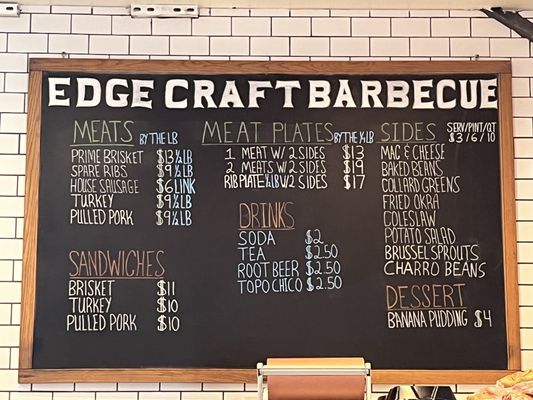 EDGE CRAFT BARBECUE
MEATS BY THE LB
PRIME BRISKET $13 ½LB
SPARE RIBS $9 ½LB
HOUSE SAUSAGE $6 LINK
TURKEY $9 ½LB
PULLED PORK $9 ½LB
SANDWICHES
BRISKET $11
TURKEY $10
PULLED PORK $10
MEAT PLATES BY THE ½LB
1 MEAT W/ 2 SIDES $13
2 MEATS W/ 2 SIDES $19
RIB PLATE ½LB W/ 2 SIDES $17
DRINKS
SODA $2
TEA $2.50
ROOT BEER $2.50
TOPO CHICO $2.50
SIDES SERV/PINT/QT
$3/6/10
MAC & CHEESE
BAKED BEANS
COLLARD GREENS
FRIED OKRA
COLESLAW
POTATO SALAD
BRUSSEL SPROUTS
CHARRO BEANS
DESSERT
BANANA PUDDING $4